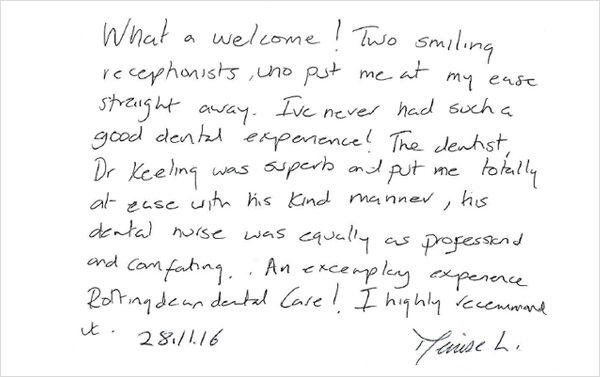 What a welcome! Two smiling
receptionists, who put me at my ease
straight away. I've never had such a
good dental experience! The dentist,
Dr Keeling was superb and put me totally
at ease with his kind manner, his
dental nurse was equally as professional
and comforting. An excemplary experience
Rottingdean dental Care! I highly recommend
it. 28.11.16 L.